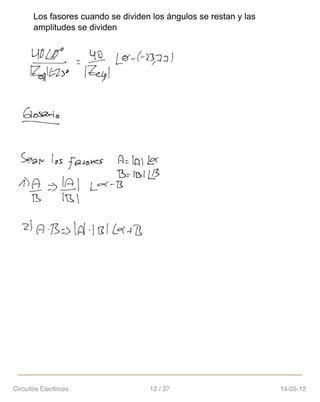 Los fasores cuando se dividen los ángulos se restan y las
amplitudes se dividen
40∠0° / |Zeq|∠-23° = 40 / |Zeq| ∠0-(-23,22)
Glosario
Sean los fasores A=|A|∠α
B=|B|∠B
1) A/B ⇒ |A|/|B| ∠α-B
2) A·B⇒|A|·|B|∠α+B
Circuitos Electircos 12 / 37 14-05-12